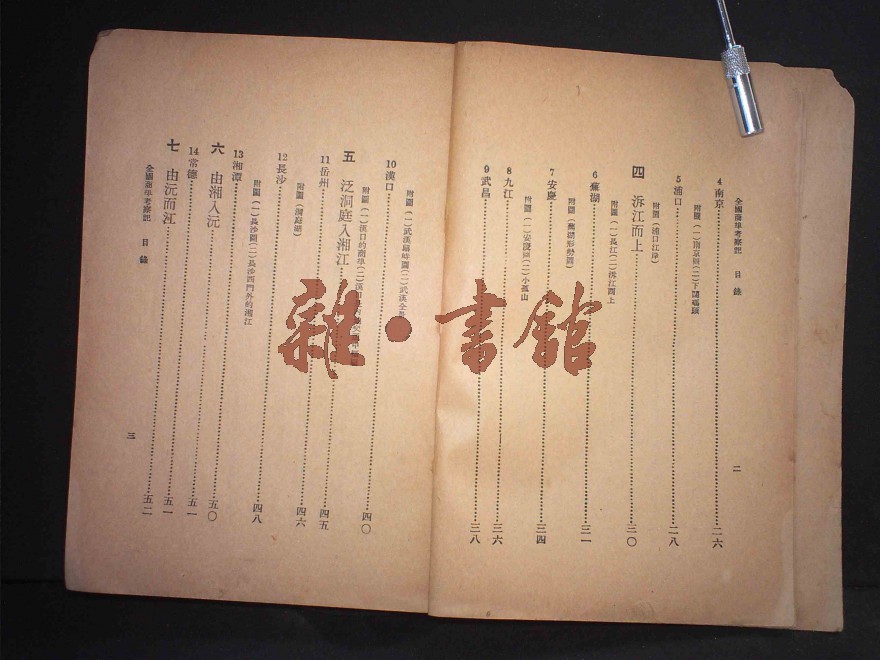 全國商埠考察記　目錄
二
4 南京……二六
附圖（一）南京街（二）下關碼頭
5 浦口……二八
附圖（浦口江岸）
四　泝江而上……三〇
附圖（一）長江（二）泝江而上
6 蕪湖……三一
附圖（蕪湖形勢圖）
7 安慶……三四
附圖（一）安慶圖（二）小孤山
8 九江……三六
9 武昌……三八
附圖（一）武漢（二）武漢全
10 漢口……四〇
附圖（一）漢口的商埠（二）漢口
五　泛洞庭入湘江……四五
11 岳州……四六
附圖（洞庭湖）
12 長沙……四八
附圖（一）長沙圖（二）長沙西門外的湘江
13 湘潭……五〇
六　由湘入沅……五一
14 常德……五一
七　由沅而江……五二
全國商埠考察記　目錄
三
雜•書館